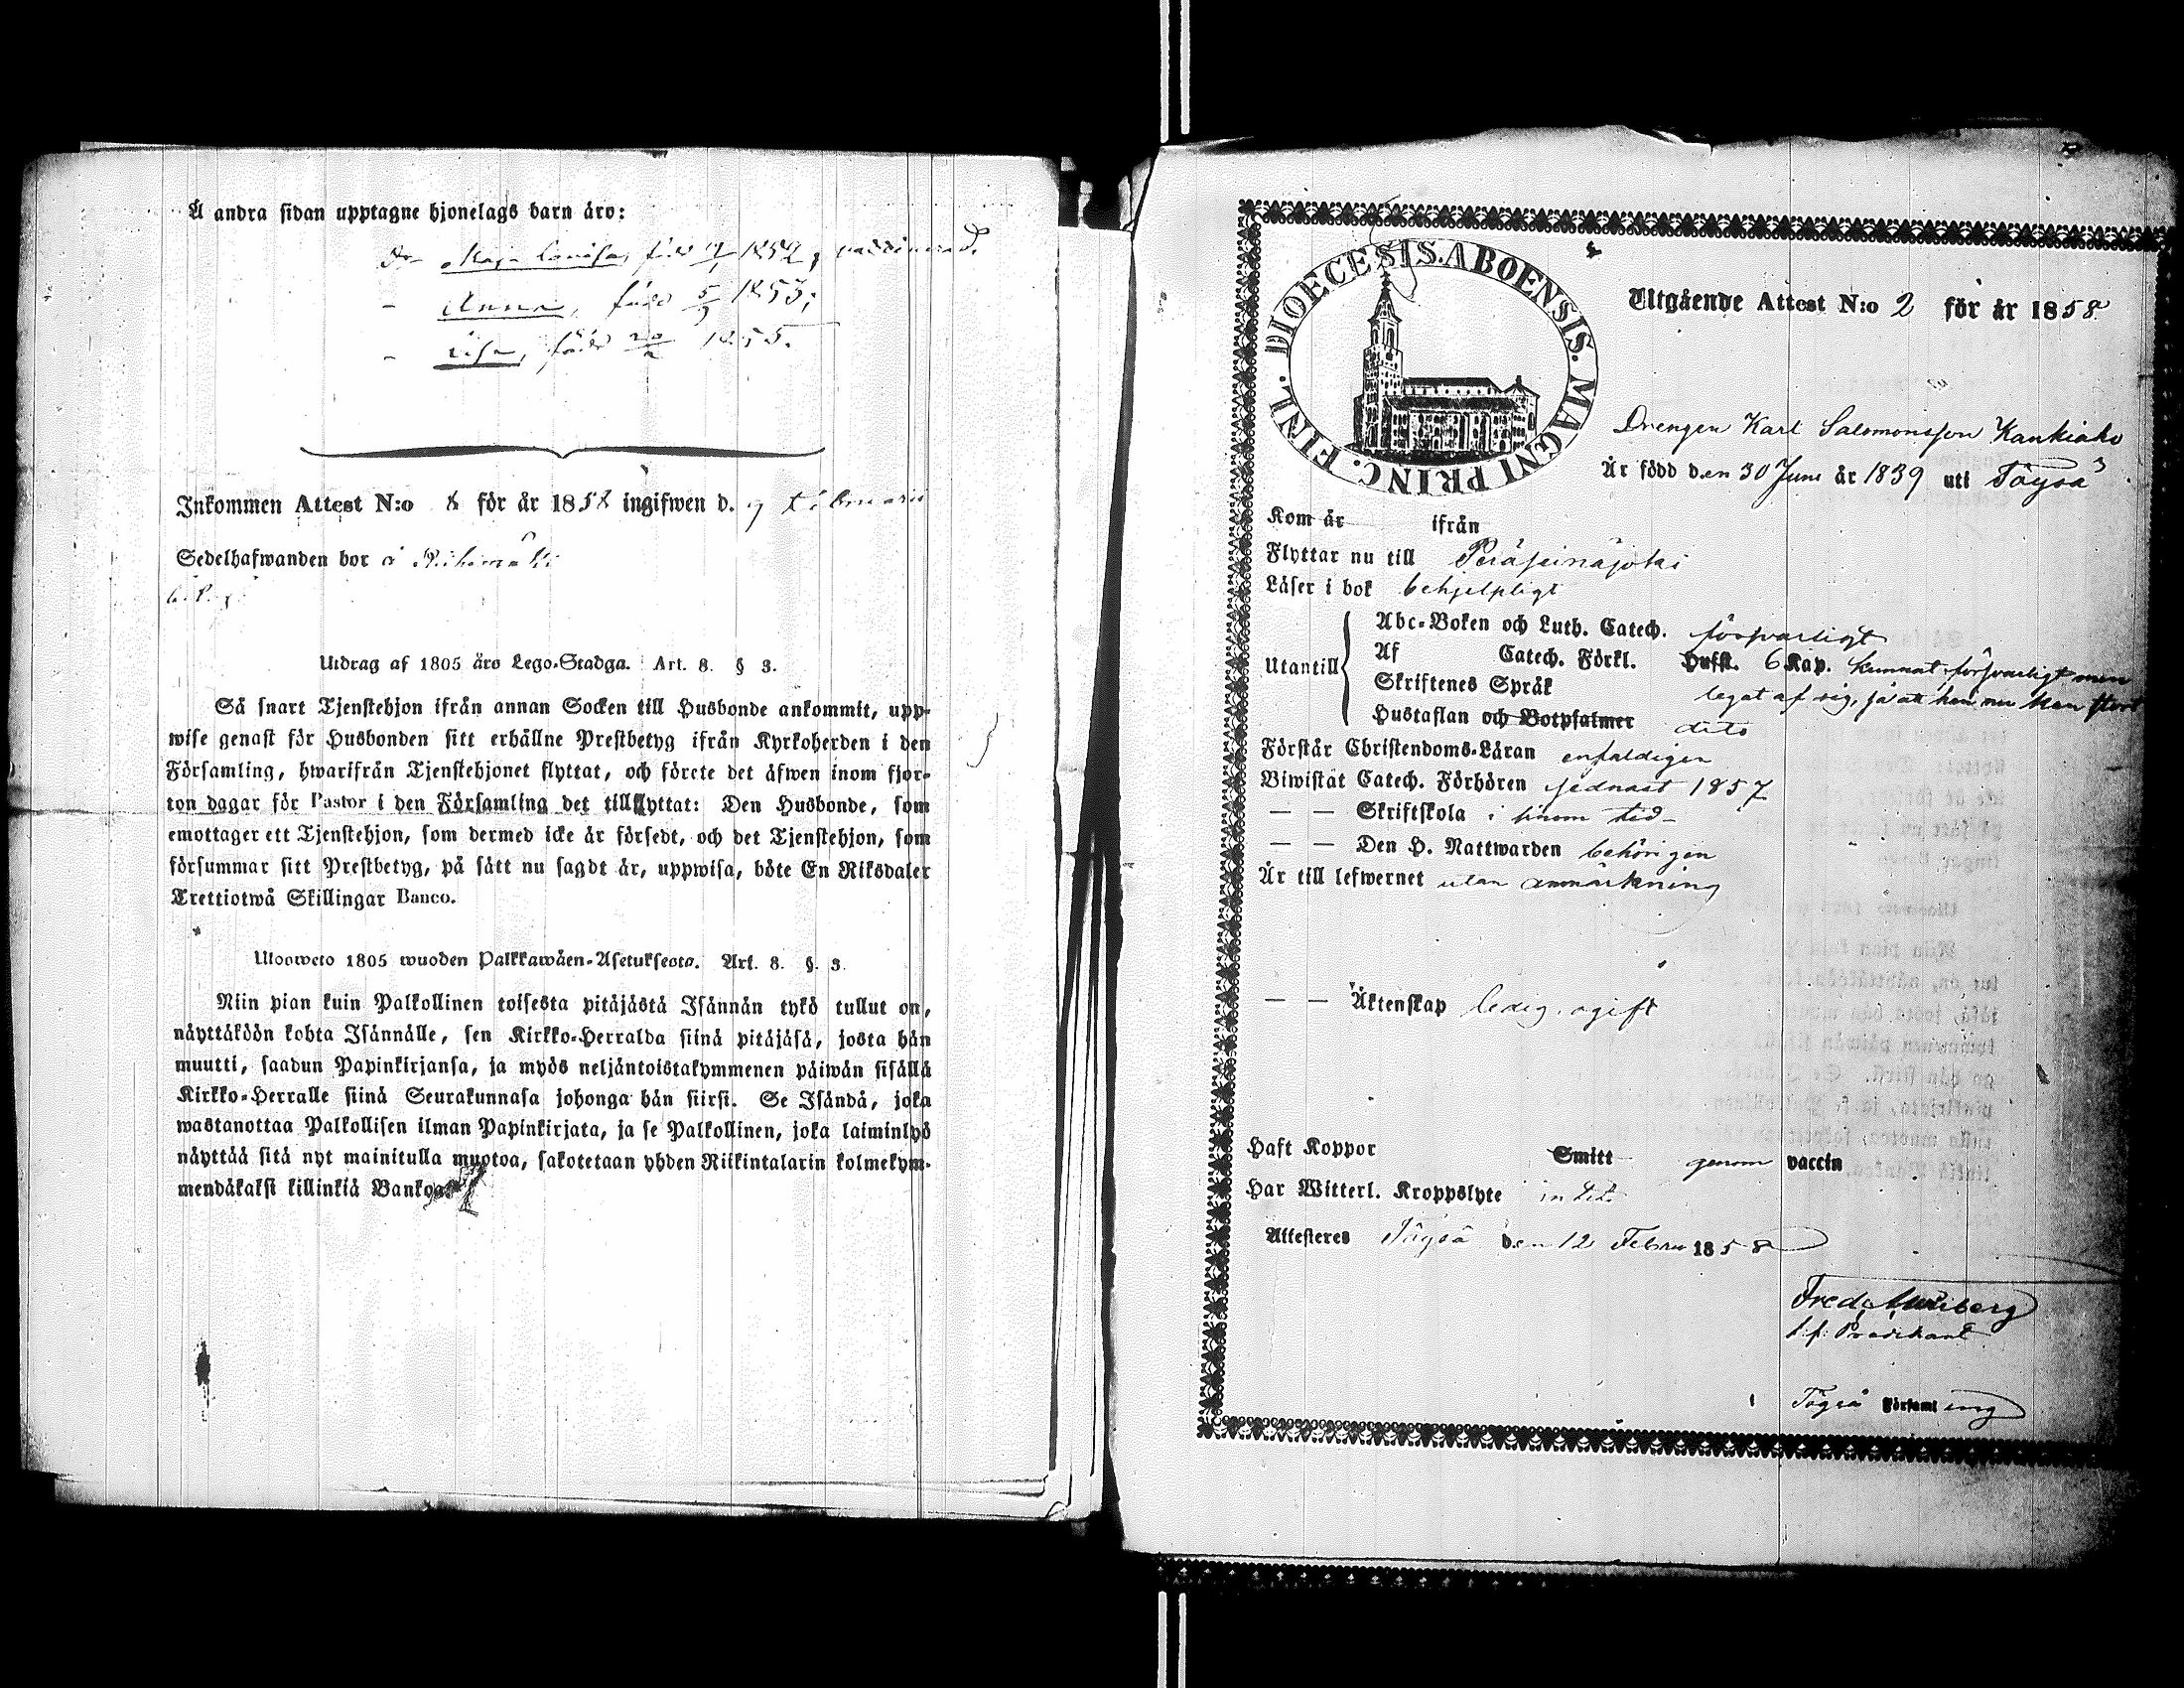 Å andra sidan upptagne hjonelags barn äro:
Maja Lovisa, född 1852, vaccinerad.
- Anna, född 5/9 1853;
- född 20 1855.
Inkommen Attest N:o 8 för år 1858 ingifwen d. 9 februarii
Sedelhafwanden bor å
Utdrag af 1805 års Lego-Stadga. Art. 8. § 3.
Så snart Tjenstehjon ifrån annan Socken till Husbonde ankommit, upp-
wise genast för Husbonden sitt erhållne Prestbetyg ifrån Kyrkoherden i den
Församling, hwarifrån Tjenstehjonet flyttat, och förete det äfwen inom fjor-
ton dagar för Pastor i den Församling det tillflyttat: Den Husbonde, som
emottager ett Tjenstehjon, som dermed icke är försedt, och det Tjenstehjon, som
försummar sitt Prestbetyg, på sätt nu sagdt är, uppwisa, böte En Riksdaler
Trettiotwå Skillingar Banco.
Uloosweto 1805 wuoden Palkkawäen-Asetuksesta. Art. 8. §. 3.
Niin pian kuin Palkollinen toisesta pitäjästä Isännän tykö tullut on,
näyttäköön kohta Isännälle, sen Kirkko-Herralda siinä pitäjäsä, josta hän
muutti, saadun Papinkirjansa, ja myös neljäntoistakymmenen päiwän sisällä
Kirkko-Herralle siinä Seurakunnasa johonga hän siirsi. Se Isändä, joka
wastanottaa Palkollisen ilman Papinkirjata, ja se Palkollinen, joka laiminlyö
näyttää sitä nyt mainitulla muotoa, sakotetaan yhden Riikintalarin kolmekym-
mendäkaksi killinkiä Bankoa.
DIOECESIS. ABOENSIS. MAGNI PRINC. FINL.
Utgående Attest N:o 2 för år 1858
Drengen Karl Salomonsson Kankiaho
Är född den 30 Juni år 1839 uti Töysä
Kom år ifrån
Flyttar nu till Peräseinäjoki
Läser i bok behjelpligt
Utantill
Abc-Boken och Luth. Catech. försvarligt
Af Catech. Förkl. Hufst. 6 Kap. kunnat försvarligt men
Skriftenes Språk legat af sig, så att han nu kan
Hustaflan och Botpsalmer dito
Förstår Christendoms-Läran enfaldigen
Biwistat Catech. Förhören sednast 1857
— — Skriftskola i sinom tid
— — Den H. Nattwarden behörigen
Är till lefwernet utan anmärkning
— — Äktenskap ledig, ogift
Haft Koppor Smitt genom vaccin
Har Witterl. Kroppslyte intet
Attesteres Töysä den 12 Febru 1858
Fred.
t.f. Predikant
i Töysä Församling